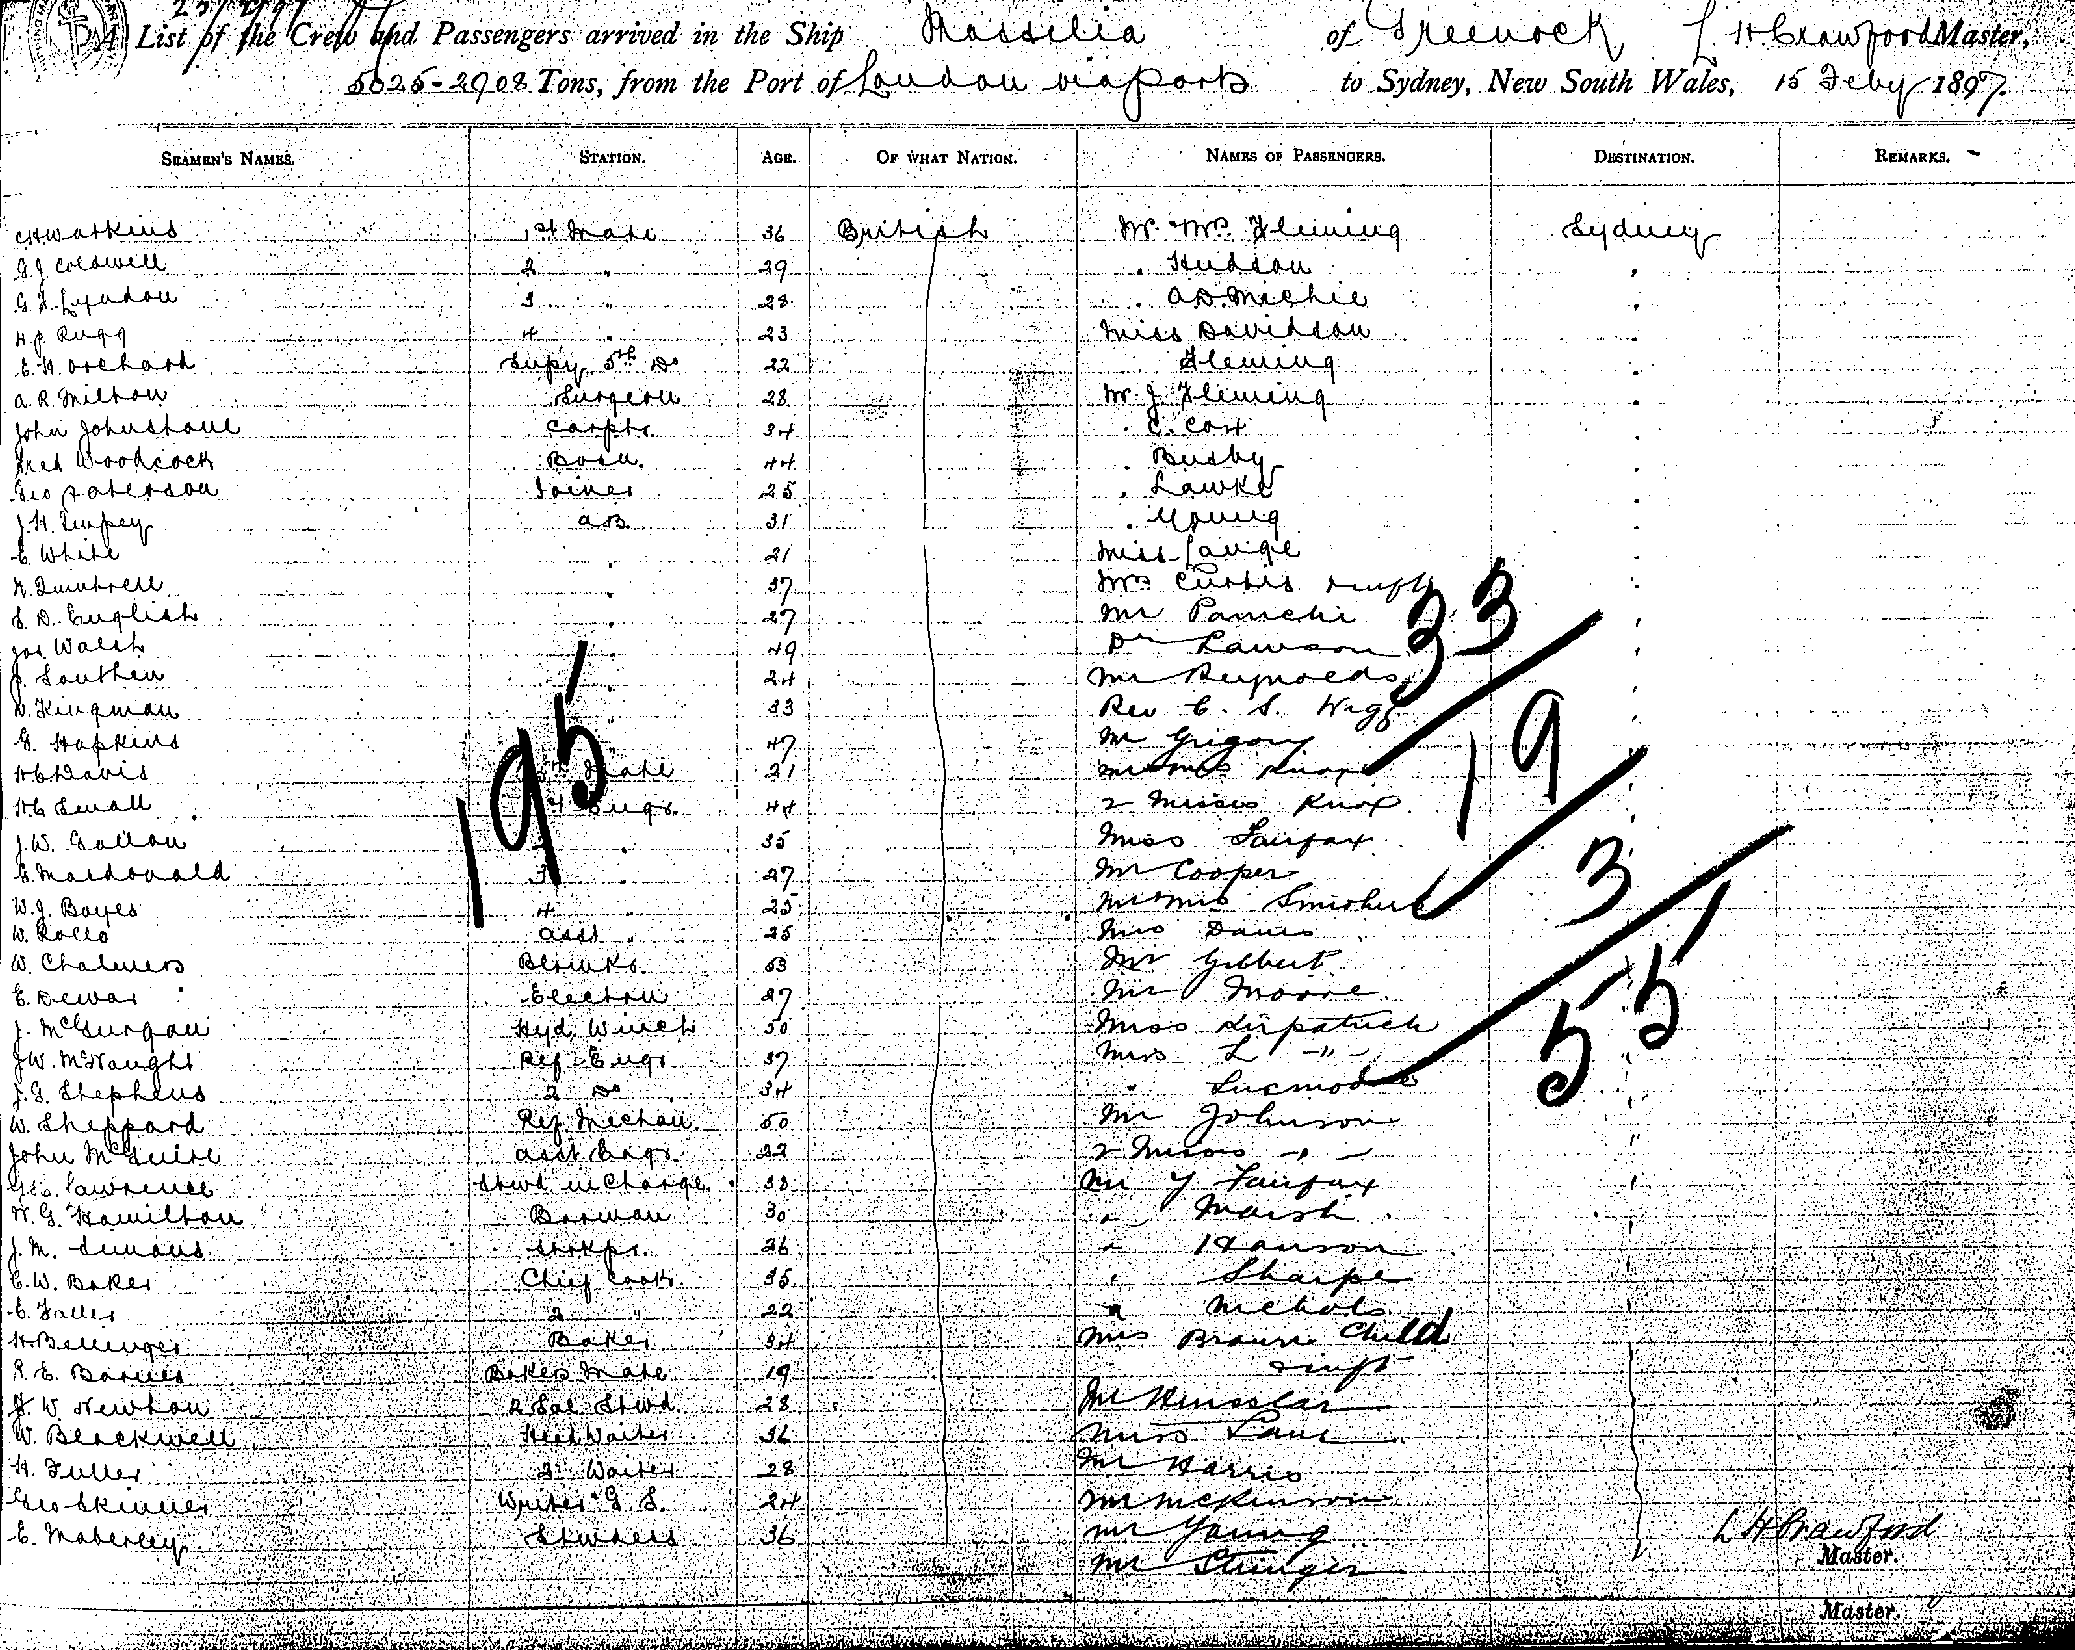 A List of the Crew and Passengers arrived in the Ship Massilia of Greenock L H Crawford Master,
5025-2908 Tons, from the Port of London via ports to Sydney, New South Wales, 15 Feby 1897.
SEAMEN'S NAMES. STATION. AGE. OF WHAT NATION. NAMES OF PASSENGERS. DESTINATION. REMARKS.
C H Watkins 1st Mate 36 British Mr & Mrs Fleming Sydney
G J Coldwell 2 " 29 " Hudson "
G F Lyndon 3 " 28 " A D. Michie "
H J Rugg 4 " 23 Miss Davidson "
E. H. Orchard Supy 5th Do 22 Fleming "
A R Milton Surgeon 28 Mr J. Fleming "
John Johnstone Carptr. 34 " C. Cox "
Fred Woodcock Bosn. 44 " Busby "
Geo Paterson Joiner 25 " Lawke "
J. H. Impey AB 31 " Young "
E White " 21 Miss "
37 Mrs Curtis & inft "
S. D. English " 27 Mr "
Jos Walsh " 49 Dr Lawson "
J. Southen " 24 Mr Reynolds "
W. Kingman " 33 Rev C. S. "
G. Hopkins " 47 Mr Grigory "
H C Davis Mate 21 Mr & Mrs Knox "
H C Small 1 Engr. 44 2 Misses Knox "
J. W. Gallon " 35 Miss Fairfax "
C. Macdonald 3 " 27 Mr Cooper "
W. J. Boyes 4 " 25 Mr & Mrs "
W. Rollo Asst " 25 Davis "
W. Chalmers 53 Mr Gilbert "
E. Dewar Electrn 27 Mr Moore "
J. McGurgan Hyd. Winch 50 Miss Kirpatrick "
J. W. McNaught Ref. Engr 37 Miss L " "
J. G. Stephens 2 Do 34 "
W. Sheppard Ref. Mechan. 50 Mr Johnson "
John McGuire Asst Engr. 22 2 Misses " "
Geo. Lawrence Stwd in Charge 38 Mr Fairfax "
W. G. Hamilton Barman 30 " Marsh "
J. M. Simons Storkpr. 26 " Hanson "
C. W. Baker Chief Cook 35 " Sharpe "
E. 2 " 22 " Nichols "
H. Bellinger Baker 34 Mrs Browne Child
E. Barnes Bakers Mate 19 & inft
J. W. Newton 2 Sal Stwd. 28 Mr
W. Blackwell Head Waiter 36 Miss Lane
H. Fuller 2 Waiter 28 Mr Harris
Geo Skinner Writer G. S. 24 Mr McKinson
E. Maberley Stwdess 36 Mr Young L H Crawford
Mr Stringer Master.
Master.
195
33
19
3
55